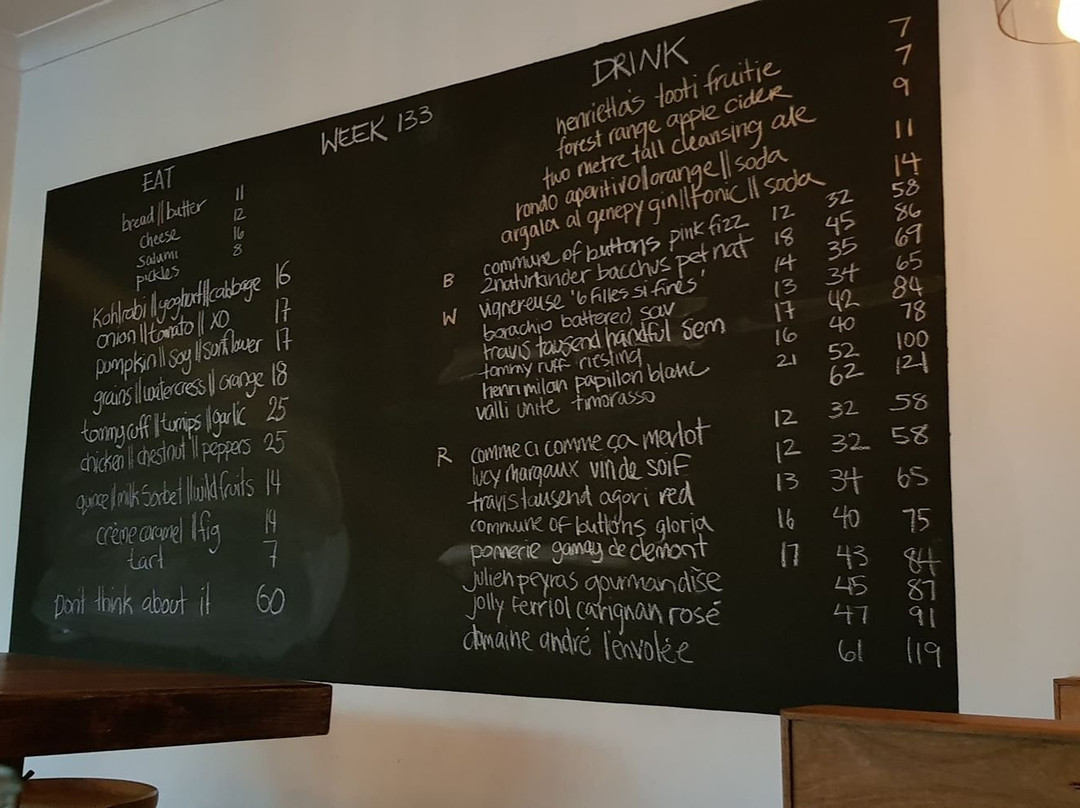 WEEK 133
EAT
bread||butter 11
cheese 12
salumi 16
pickles 8
kohlrabi||yoghurt||cabbage 16
onion||tomato||XO 17
pumpkin||soy||sunflower 17
grains||watercress||orange 18
tommy ruff||turnips||garlic 25
chicken||chestnut||peppers 25
quince||milk sorbet||wild fruits 14
crème caramel||fig 14
tart 7
don't think about it 60
DRINK
henrietta's tooti fruitie 7
forest range apple cider 7
two metre tall cleansing ale 9
rondo aperitivo||orange||soda 11
argala al genepy gin||tonic||soda 14
B commune of buttons pink fizz 12 32 58
2naturkinder bacchus pet nat 18 45 86
W vignereuse '6 filles si fines' 14 35 69
borachio battered sav 13 34 65
travis tausend handful sem 17 42 84
tommy ruff riesling 16 40 78
henri milan papillon blanc 21 52 100
valli unite timorasso 62 121
R comme ci comme ça merlot 12 32 58
lucy margaux vin de soif 12 32 58
travis tausend agori red 13 34 65
commune of buttons gloria 16 40 75
ponnerie gamay de clemont 17 43 84
julien peyras gourmandise 45 87
jolly ferriol carignan rosé 47 91
domaine andré l'envolée 61 119